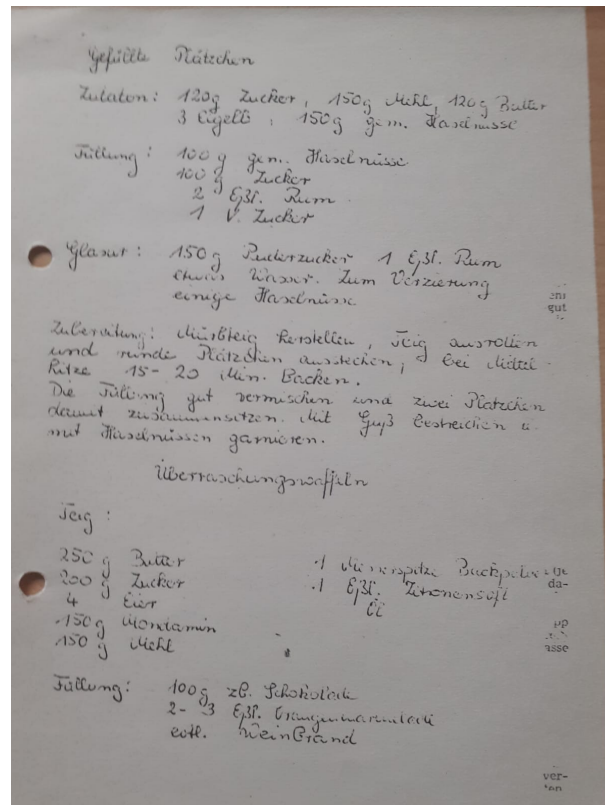 Gefüllte Plätzchen
Zutaten: 120g Zucker, 150g Mehl, 120g Butter
3 Eigelb, 150g gem. Haselnüsse
Füllung: 100 g gem. Haselnüsse
100 g Zucker
2 Eßl. Rum
1 V. Zucker
Glasur: 150g Puderzucker 1 Eßl. Rum
etwas Wasser. Zum Verzierung
einige Haselnüsse
gut
Zubereitung: Mürbteig herstellen, Teig ausrollen
und runde Plätzchen ausstechen, bei Mittel
hitze 15-20 Min. Backen.
Die Füllung gut vermischen und zwei Plätzchen
damit zusammensetzen. Mit Guß bestreichen u.
mit Haselnüssen garnieren.
Überraschungswaffeln
Teig:
250 g Butter 1 Messerspitze
200 g Zucker 1 Eßl. Zitronensaft
da-
4 Eier Öl
150g Mondamin
150 g Mehl
asse
Füllung: 100g zB. Schokolade
2-3 Eßl. Orangenmarmelade
evtl. WeinBrand
ver-